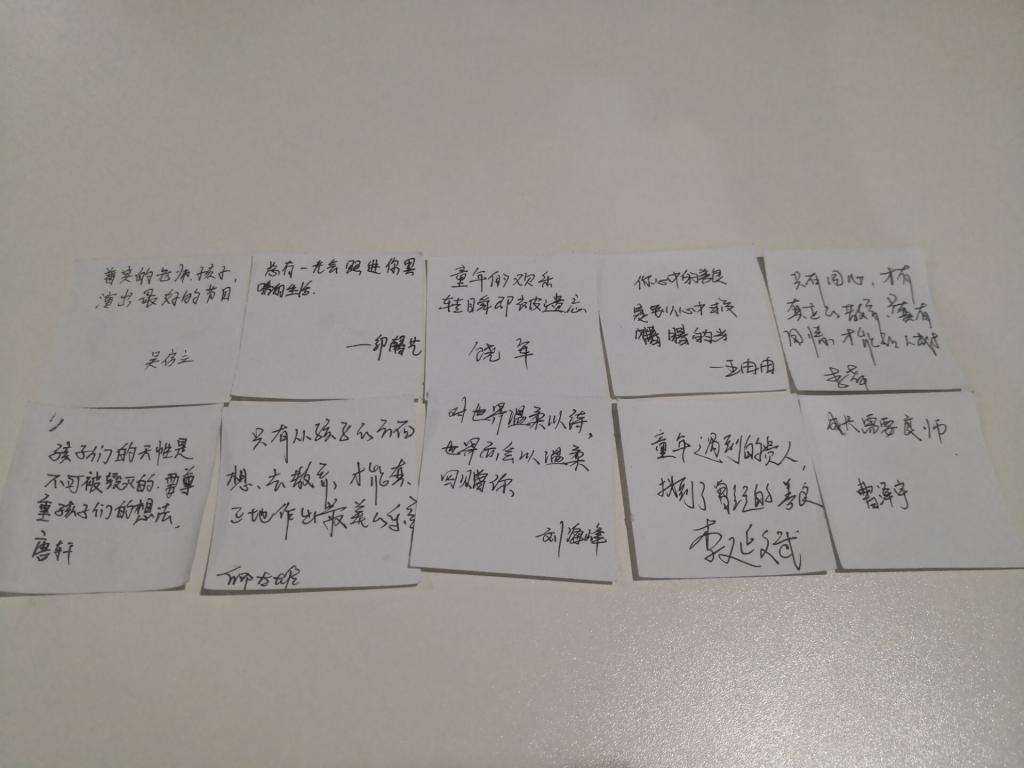 着实的老师,孩子,
演出最好的节目
吴
总有一光会照进你黑
暗的生活.
—印
童年的欢乐
转瞬即被遗忘
饶军
你心中的善良
是别人心中
的光
—王由由
只有用心,才有
真正的教育,要有
用情才能
孩子们的天性是
不可被毁灭的.尊
重孩子们的想法,
唐轩
只有从孩子的方面
想、去教育,才能真
正地作出最美的
对世界温柔以待,
世界而会以温柔
回赠你
刘海峰
童年遇到的贵人,
找到了自己的意义
李延斌
成长需要良师
曹泽宇